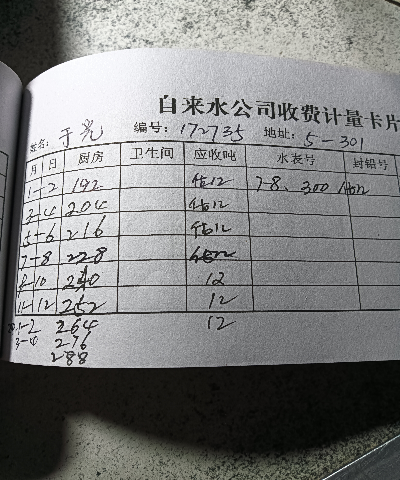 自来水公司收费计量卡片
姓名：于光 编号：172735 地址：5-301
月 日 厨房 卫生间 应收吨 水表号 封铅号
1-2 192 估12
3-4 204 估12
5-6 216 估12
7-8 228
9-10 240 12
11-12 252 12
1-2 264 12
3-4 276
288